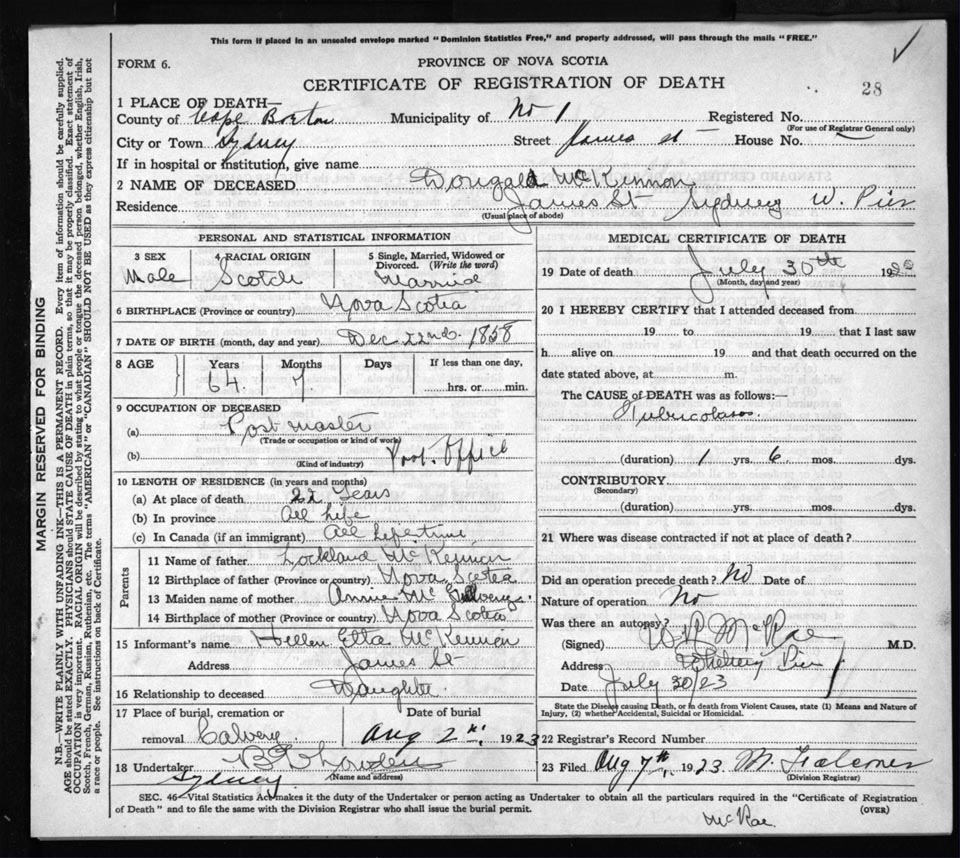 This form if placed in an unsealed envelope marked "Dominion Statistics Free," and properly addressed, will pass through the mails "FREE."
FORM 6.
PROVINCE OF NOVA SCOTIA
CERTIFICATE OF REGISTRATION OF DEATH
28
1 PLACE OF DEATH—
County of Cape Breton Municipality of No 1 Registered No.
(For use of Registrar General only)
City or Town Sydney Street James st House No.
If in hospital or institution, give name
2 NAME OF DECEASED Dougald McKinnon
Residence James St Sydney W. Pier
(Usual place of abode)
PERSONAL AND STATISTICAL INFORMATION
3 SEX 4 RACIAL ORIGIN 5 Single, Married, Widowed or Divorced. (Write the word)
Male Scotch Married
6 BIRTHPLACE (Province or country) Nova Scotia
7 DATE OF BIRTH (month, day and year) Dec 22nd 1858
8 AGE Years Months Days If less than one day,
64 7 hrs. or min.
9 OCCUPATION OF DECEASED
(a) Post master
(Trade or occupation or kind of work)
(b) Post Office
(Kind of industry)
10 LENGTH OF RESIDENCE (in years and months)
(a) At place of death 22 Years
(b) In province all life
(c) In Canada (if an immigrant) all lifetime
Parents
11 Name of father Lockland McKennon
12 Birthplace of father (Province or country) Nova Scotia
13 Maiden name of mother Annie Mc
14 Birthplace of mother (Province or country) Nova Scotia
15 Informant's name Hellen Etta McKennon
Address James St
16 Relationship to deceased Daughter
17 Place of burial, cremation or removal Calvery Date of burial Aug 2nd. 1923
18 Undertaker
(Name and address)
Sydney
MEDICAL CERTIFICATE OF DEATH
19 Date of death July 30th 192
(Month, day and year)
20 I HEREBY CERTIFY that I attended deceased from
19 to 19 that I last saw
h alive on 19 and that death occurred on the
date stated above, at m.
The CAUSE of DEATH was as follows:—
Tubricolosos
(duration) 1 yrs. 6 mos. dys.
CONTRIBUTORY
(Secondary)
(duration) yrs. mos. dys.
21 Where was disease contracted if not at place of death?
Did an operation precede death? No Date of
Nature of operation No
Was there an autopsy?
(Signed) McRae M.D.
Address Whitney Pier
Date July 30/23
State the Disease causing Death, or in death from Violent Causes, state (1) Means and Nature of Injury, (2) whether Accidental, Suicidal or Homicidal.
22 Registrar's Record Number
23 Filed Aug 7th, 1923 M. Falconer
(Division Registrar)
SEC. 46—Vital Statistics Act makes it the duty of the Undertaker or person acting as Undertaker to obtain all the particulars required in the "Certificate of Registration
of Death" and to file the same with the Division Registrar who shall issue the burial permit. (OVER)
McRae.
MARGIN RESERVED FOR BINDING
N.B.—WRITE PLAINLY WITH UNFADING INK—THIS IS A PERMANENT RECORD. Every item of information should be carefully supplied.
AGE should be stated EXACTLY. PHYSICIANS should STATE CAUSE OF DEATH in plain terms, so that it may be properly classified. Exact statement of
OCCUPATION is very important. RACIAL ORIGIN will be described by stating to what people or tongue the deceased person belonged, whether English, Irish,
Scotch, French, German, Russian, Ruthenian, etc. The terms "AMERICAN" or "CANADIAN" SHOULD NOT BE USED as they express citizenship but not
a race or people. See instructions on back of Certificate.